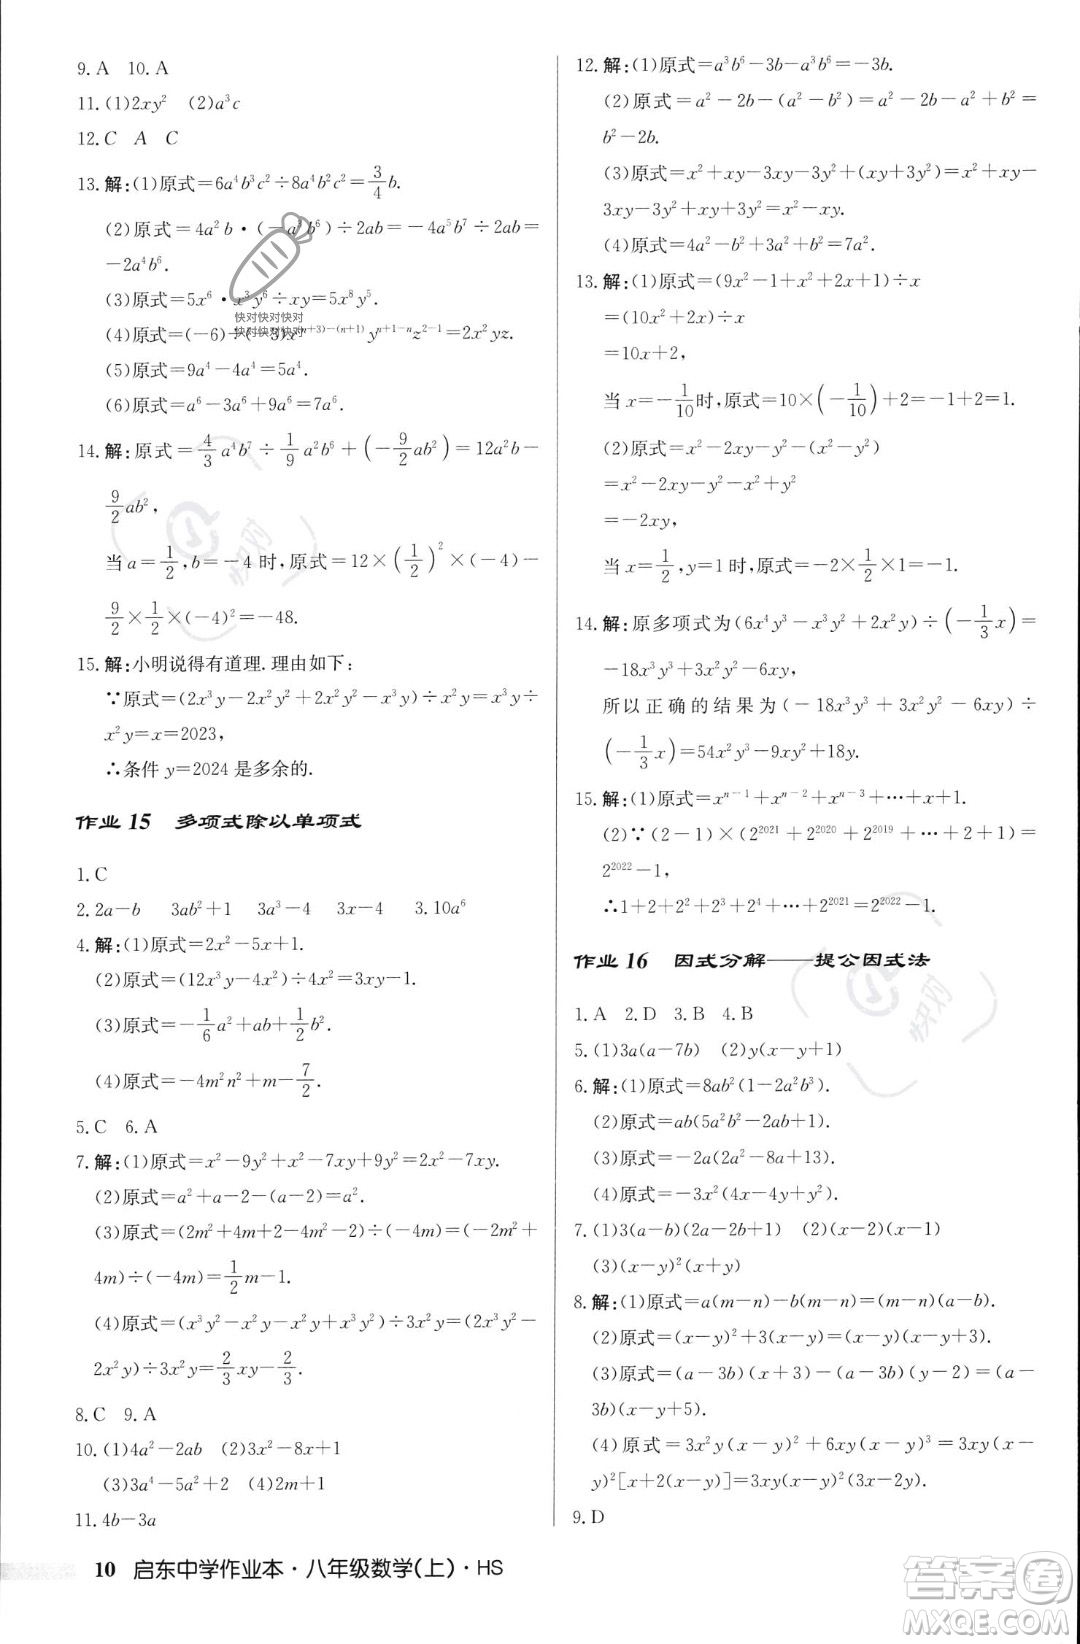 9. A　10. A
11. (1)2xy²　(2)a³c
12. C　A　C
13. 解:(1)原式=6a⁴b³c²÷8a⁴b²c²=3/4 b.
(2)原式=4a²b·(-a³b⁶)÷2ab=-4a⁵b⁷÷2ab=
-2a⁴b⁶.
(3)原式=5x⁶·x³y⁶÷xy=5x⁸y⁵.
(4)原式=(-6)÷(-3)x⁽ⁿ⁺³⁾⁻⁽ⁿ⁺¹⁾yⁿ⁺¹⁻ⁿz²⁻¹=2x²yz.
(5)原式=9a⁴-4a⁴=5a⁴.
(6)原式=a⁶-3a⁶+9a⁶=7a⁶.
14. 解:原式=4/3 a⁴b⁷÷1/9 a²b⁶+(-9/2 ab²)=12a²b-
9/2 ab²,
当a=1/2,b=-4时,原式=12×(1/2)²×(-4)-
9/2×1/2×(-4)²=-48.
15. 解:小明说得有道理.理由如下:
∵原式=(2x³y-2x²y²+2x²y²-x³y)÷x²y=x³y÷
x²y=x=2023,
∴条件y=2024是多余的.
作业15　多项式除以单项式
1. C
2. 2a-b　3ab²+1　3a³-4　3x-4　3. 10a⁶
4. 解:(1)原式=2x²-5x+1.
(2)原式=(12x³y-4x²)÷4x²=3xy-1.
(3)原式=-1/6 a²+ab+1/2 b².
(4)原式=-4m²n²+m-7/2.
5. C　6. A
7. 解:(1)原式=x²-9y²+x²-7xy+9y²=2x²-7xy.
(2)原式=a²+a-2-(a-2)=a².
(3)原式=(2m²+4m+2-4m²-2)÷(-4m)=(-2m²+
4m)÷(-4m)=1/2 m-1.
(4)原式=(x³y²-x²y-x²y+x³y²)÷3x²y=(2x³y²-
2x²y)÷3x²y=2/3 xy-2/3.
8. C　9. A
10. (1)4a²-2ab　(2)3x²-8x+1
(3)3a⁴-5a²+2　(4)2m+1
11. 4b-3a
12. 解:(1)原式=a³b⁶-3b-a³b⁶=-3b.
(2)原式=a²-2b-(a²-b²)=a²-2b-a²+b²=
b²-2b.
(3)原式=x²+xy-3xy-3y²+(xy+3y²)=x²+xy-
3xy-3y²+xy+3y²=x²-xy.
(4)原式=4a²-b²+3a²+b²=7a².
13. 解:(1)原式=(9x²-1+x²+2x+1)÷x
=(10x²+2x)÷x
=10x+2,
当x=-1/10时,原式=10×(-1/10)+2=-1+2=1.
(2)原式=x²-2xy-(x²-y²)-y²
=x²-2xy-x²+y²-y²
=-2xy,
当x=1/2,y=1时,原式=-2×1/2×1=-1.
14. 解:原多项式为(6x⁴y³-x³y²+2x²y)÷(-1/3 x)=
-18x³y³+3x²y²-6xy,
所以正确的结果为(-18x³y³+3x²y²-6xy)÷
(-1/3 x)=54x²y³-9xy²+18y.
15. 解:(1)原式=xⁿ⁻¹+xⁿ⁻²+xⁿ⁻³+…+x+1.
(2)∵(2-1)×(2²⁰²¹+2²⁰²⁰+2²⁰¹⁹+…+2+1)=
2²⁰²²-1,
∴1+2+2²+2³+2⁴+…+2²⁰²¹=2²⁰²²-1.
作业16　因式分解——提公因式法
1. A　2. D　3. B　4. B
5. (1)3a(a-7b)　(2)y(x-y+1)
6. 解:(1)原式=8ab²(1-2a²b²).
(2)原式=ab(5a²b²-2ab+1).
(3)原式=-2a(2a²-8a+13).
(4)原式=-3x²(4x-4y+y²).
7. (1)3(a-b)(2a-2b+1)　(2)(x-2)(x-1)
(3)(x-y)²(x+y)
8. 解:(1)原式=a(m-n)-b(m-n)=(m-n)(a-b).
(2)原式=(x-y)²+3(x-y)=(x-y)(x-y+3).
(3)原式=(x-y)(a-3b)+5(a-3b)=(a-
3b)(x-y+5).
(4)原式=3x²y(x-y)²+6xy(x-y)²=3xy(x-
y)²[x+2(x-y)]=3xy(x-y)²(3x-2y).
9. D
快对快对快对
快对快对快对
快对
快对
10　启东中学作业本·八年级数学(上)·HS
答案卷
MXQE.COM